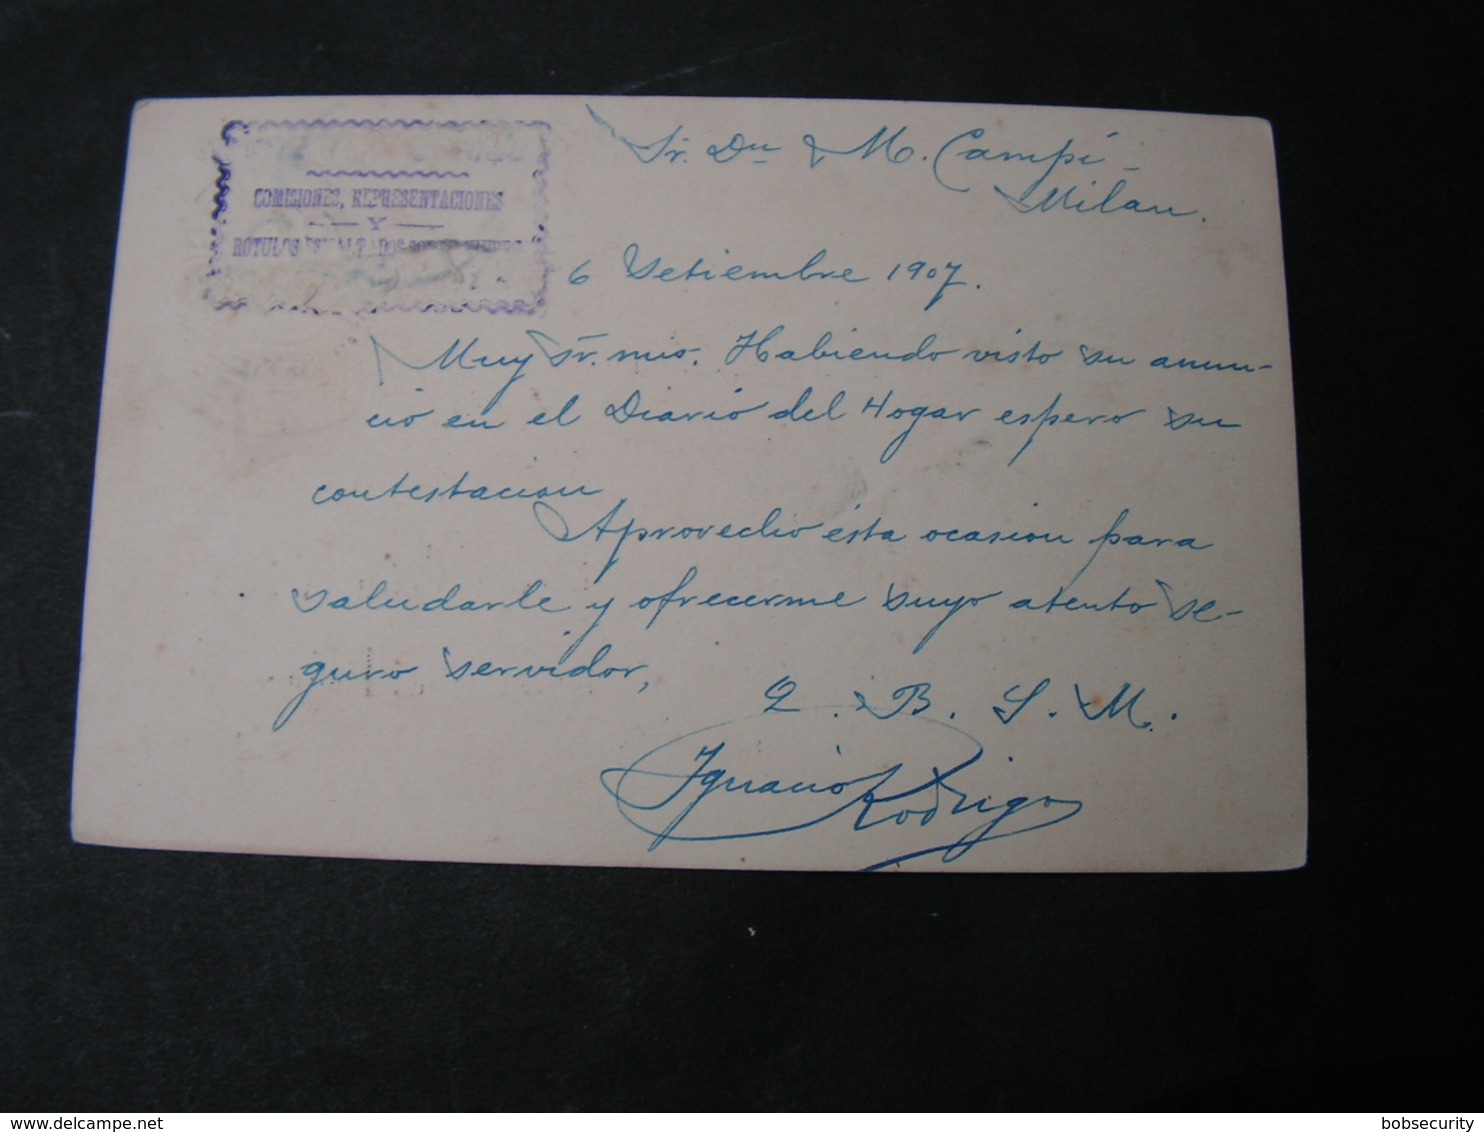 COMISIONES, REPRESENTACIONES
Y
ROTULOS ESMALTADOS
Sr. Dn M. Campi
Milan.
6 Setiembre 1907.
Muy Sr. mio. Habiendo visto su anun-
cio en el Diario del Hogar espero su
contestacion
Aprovecho ésta ocasion para
saludarle y ofrecerme suyo atento se-
guro servidor,
Q. B. S. M.
Ignacio Rodrigo
delcampe.net
bobsecurity